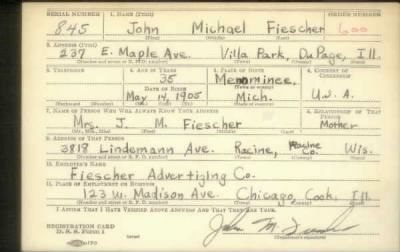 SERIAL NUMBER 1. NAME (Print) ORDER NUMBER
845 John Michael Fiescher
(First) (Middle) (Last)
2. ADDRESS (Print)
237 E. Maple Ave. Villa Park, DuPage, Ill.
(Number and street or R. F. D. number) (Town) (County) (State)
3. TELEPHONE 4. AGE IN YEARS 5. PLACE OF BIRTH 6. COUNTRY OF CITIZENSHIP
35 Menominee,
DATE OF BIRTH (Town or county)
May 14, 1905 Mich. U.S.A.
(Exchange) (Number) (Mo.) (Day) (Yr.) (State or country)
7. NAME OF PERSON WHO WILL ALWAYS KNOW YOUR ADDRESS 8. RELATIONSHIP OF THAT PERSON
Mrs. J. M. Fiescher Mother
(Mr., Mrs., Miss) (First) (Middle) (Last)
9. ADDRESS OF THAT PERSON
3818 Lindemann Ave. Racine, Racine Co. Wis.
(Number and street or R. F. D. number) (Town) (County) (State)
10. EMPLOYER'S NAME
Fiescher Advertizing Co.
11. PLACE OF EMPLOYMENT OR BUSINESS
123 W. Madison Ave. Chicago, Cook, Ill.
(Number and street or R. F. D. number) (Town) (County) (State)
I AFFIRM THAT I HAVE VERIFIED ABOVE ANSWERS AND THAT THEY ARE TRUE.
REGISTRATION CARD
D. S. S. Form 1 John M
(Registrant's signature)